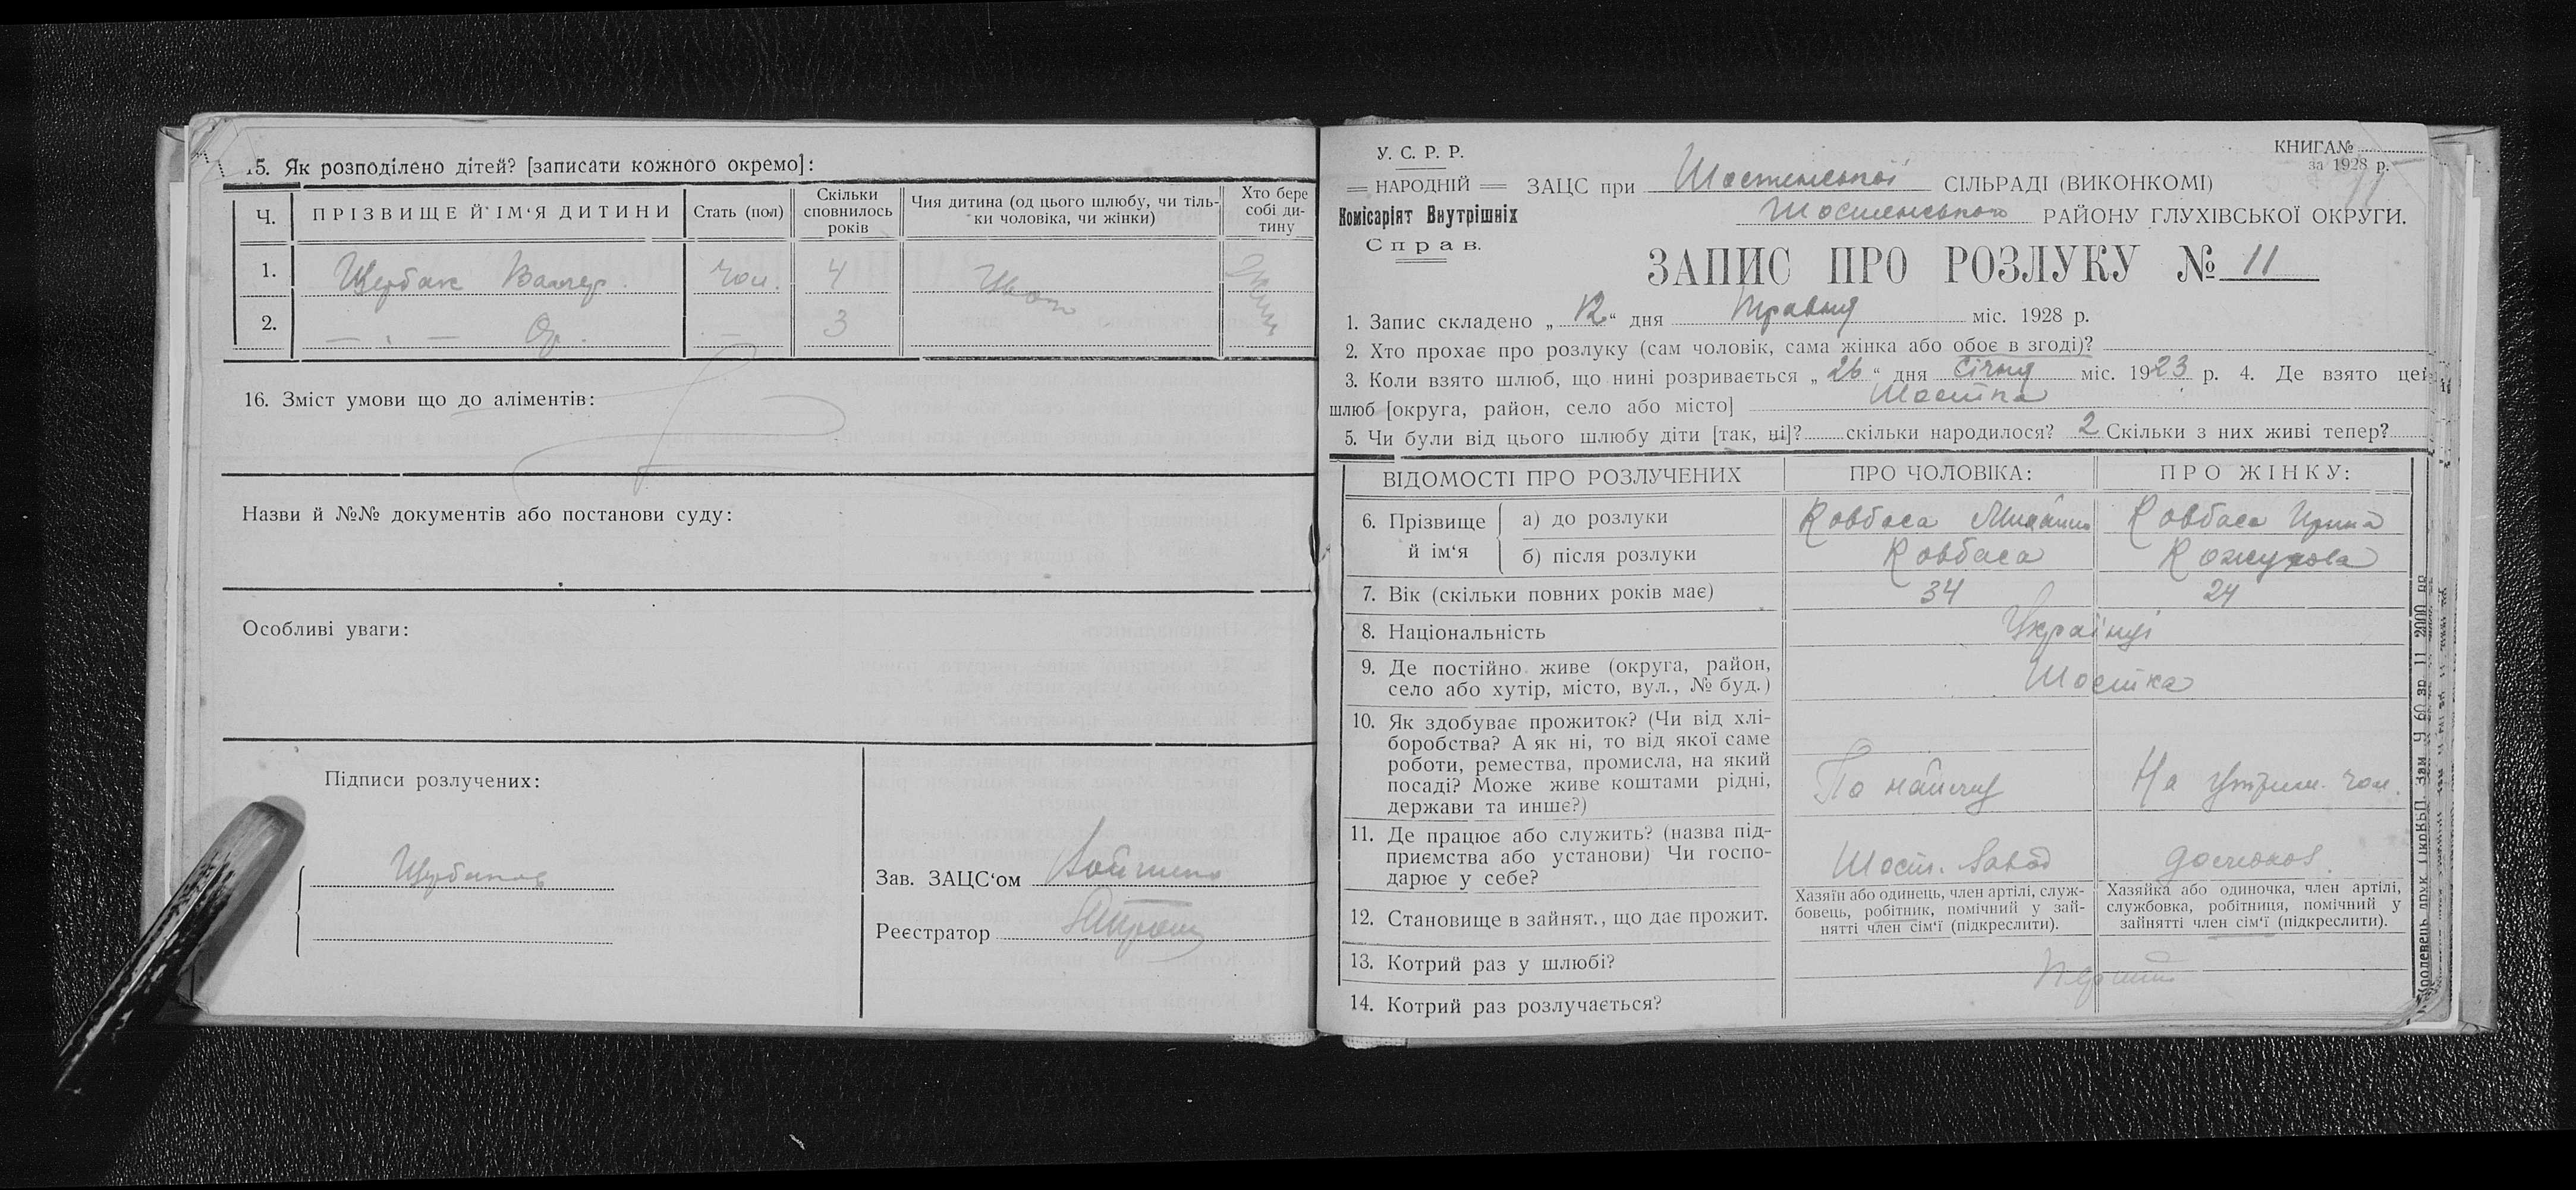 15. Як розподілено дітей? [записати кожного окремо]:
Ч. ПРІЗВИЩЕ Й ІМ‘Я ДИТИНИ Стать (пол) Скільки сповнилось років Чия дитина (од цього шлюбу, чи тільки чоловіка, чи жінки) Хто бере собі дитину
1. Щербак чол. 4
2. — „ — 3
16. Зміст умови що до аліментів:
Назви й №№ документів або постанови суду:
Особливі уваги:
Підписи розлучених:
Зав. ЗАЦС‘ом
Реєстратор
У. С. Р. Р.
НАРОДНІЙ
Комісаріят Внутрішніх
Справ.
КНИГА №
за 1928 р.
11
ЗАЦС при Шостенської СІЛЬРАДІ (ВИКОНКОМІ)
Шостенського РАЙОНУ ГЛУХІВСЬКОЇ ОКРУГИ.
ЗАПИС ПРО РОЗЛУКУ № 11
1. Запис складено „ 12 “ дня травня міс. 1928 р.
2. Хто прохає про розлуку (сам чоловік, сама жінка або обоє в згоді)?
3. Коли взято шлюб, що нині розривається „ 26 “ дня січня міс. 1923 р. 4. Де взято цей
шлюб [округа, район, село або місто] Шостка
5. Чи були від цього шлюбу діти [так, ні]? скільки народилося? 2 Скільки з них живі тепер?
ВІДОМОСТІ ПРО РОЗЛУЧЕНИХ ПРО ЧОЛОВІКА: ПРО ЖІНКУ:
6. Прізвище й ім‘я а) до розлуки Ковбаса Михайло Ковбаса Ирина
б) після розлуки Ковбаса Кожухова
7. Вік (скільки повних років має) 34 24
8. Національність Українці
9. Де постійно живе (округа, район,
село або хутір, місто, вул., № буд.) Шостка
10. Як здобуває прожиток? (Чи від хлі-
боробства? А як ні, то від якої саме
роботи, ремества, промисла, на який
посаді? Може живе коштами рідні,
держави та инше?) По найму На утрим. чол.
11. Де працює або служить? (назва під-
приємства або установи) Чи госпо-
дарює у себе? Шост. завод домогос.
12. Становище в зайнят., що дає прожит.
Хазяїн або одинець, член артілі, служ-
бовець, робітник, помічний у зай-
нятті член сім‘ї (підкреслити).
Хазяйка або одиночка, член артілі,
службовка, робітниця, помічний у
зайнятті член сім‘ї (підкреслити).
13. Котрий раз у шлюбі? Перший
14. Котрий раз розлучається?